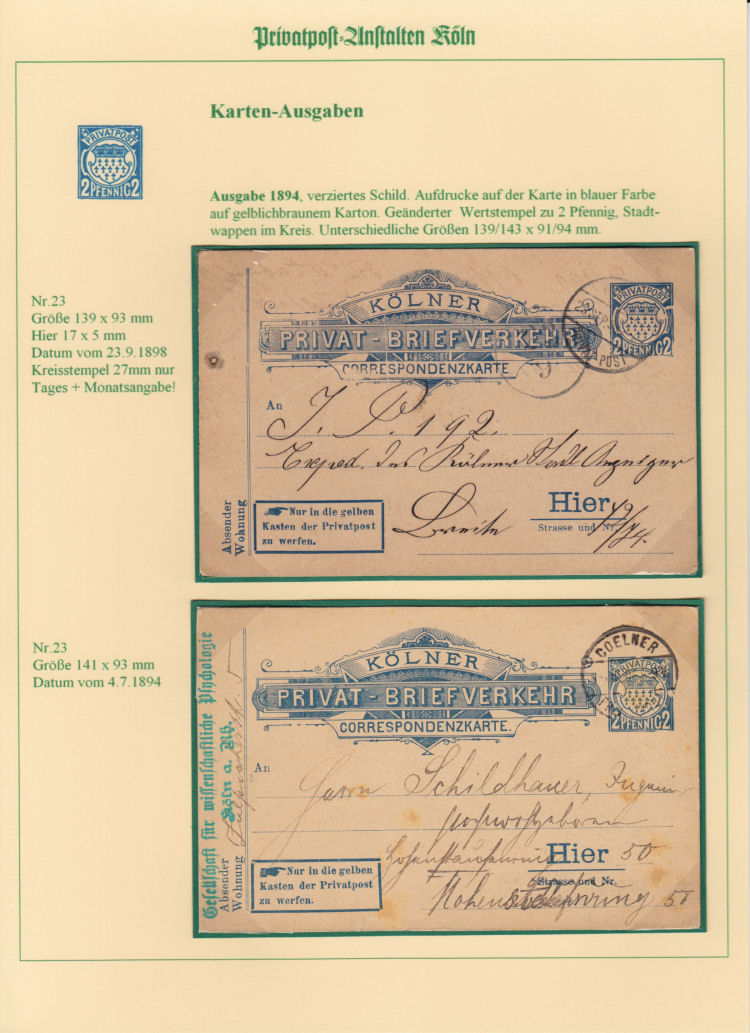 Privatpost-Anstalten Köln
Karten-Ausgaben
PRIVATPOST
2 PFENNIG 2
Ausgabe 1894, verziertes Schild. Aufdrucke auf der Karte in blauer Farbe
auf gelblichbraunem Karton. Geänderter Wertstempel zu 2 Pfennig, Stadt-
wappen im Kreis. Unterschiedliche Größen 139/143 x 91/94 mm.
Nr.23
Größe 139 x 93 mm
Hier 17 x 5 mm
Datum vom 23.9.1898
Kreisstempel 27mm nur
Tages + Monatsangabe!
KÖLNER
PRIVAT-BRIEFVERKEHR
CORRESPONDENZKARTE
PRIVATPOST
2 PFENNIG 2
POST
An
J. P. 192.
Exped. des Kölner Stadt Anzeiger
Hier
Breite
Strasse und Nr.
Absender
Wohnung
Nur in die gelben
Kasten der Privatpost
zu werfen.
Nr.23
Größe 141 x 93 mm
Datum vom 4.7.1894
Gesellschaft für wissenschaftliche Psychologie
Köln a. Rh.
KÖLNER
PRIVAT-BRIEFVERKEHR
CORRESPONDENZKARTE.
COELNER
PRIVATPOST
2 PFENNIG 2
An
Herrn Schildhauer,
Hier 50
Strasse und Nr.
50
Absender
Wohnung
Nur in die gelben
Kasten der Privatpost
zu werfen.